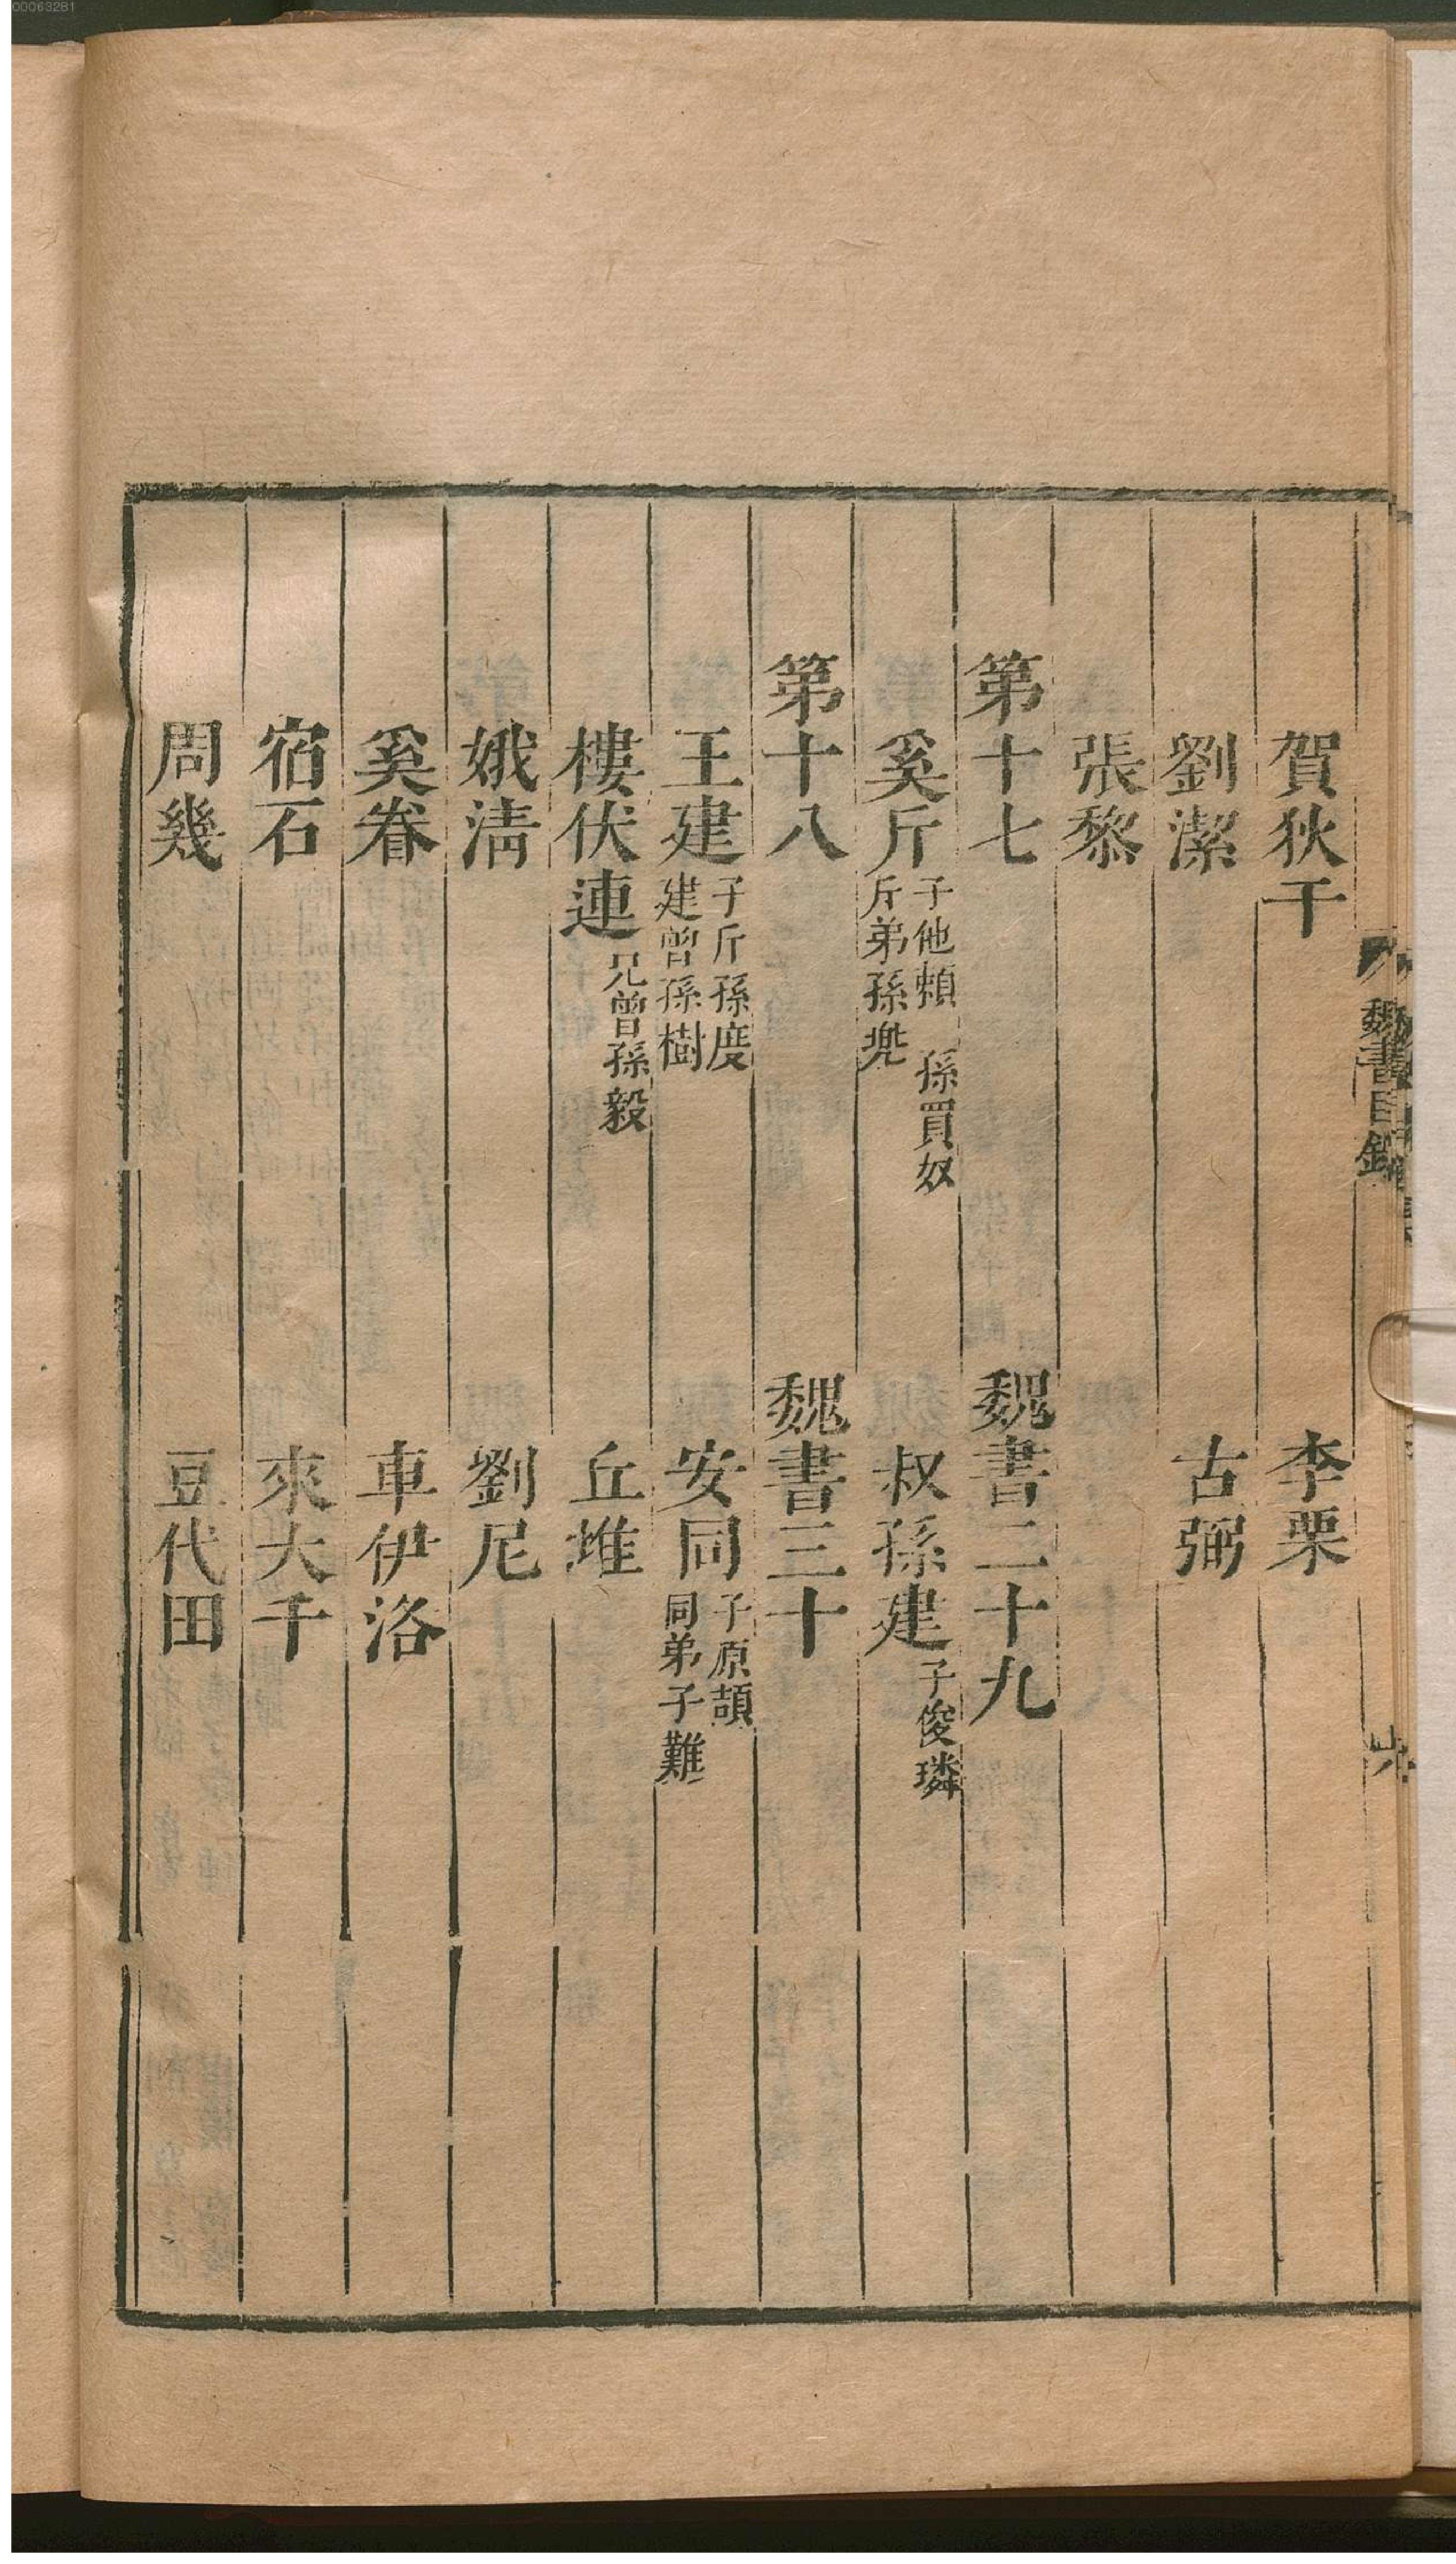 00063281
魏書目錄
賀狄干　李栗
劉潔　古弼
張黎
第十七　魏書二十九
奚斤　子他頼　孫買奴　斤弟孫兠　叔孫建　子俊璘
第十八　魏書三十
王建　子斤孫度　建曾孫樹　安同　子原頡　同弟子難
樓伏連　兄曾孫毅　丘堆
娥清　劉尼
奚眷　車伊洛
宿石　來大千
周幾　豆代田